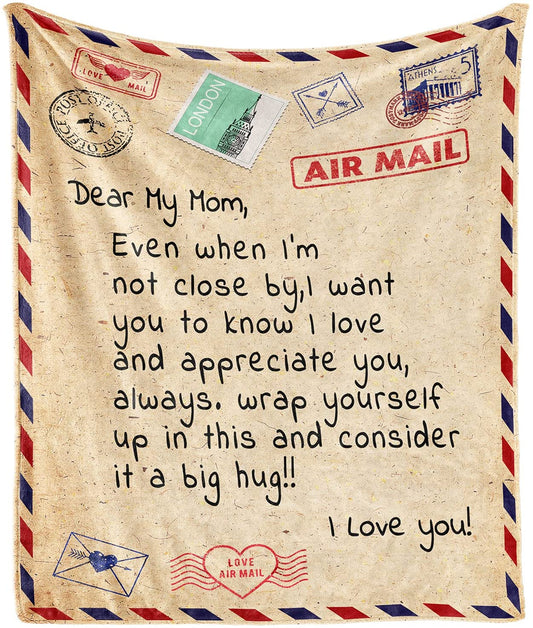 LOVE MAIL
ATHENS 5
POST OFFICE POST OFFICE
LONDON
AIR MAIL
Dear My Mom,
Even when I'm
not close by,I want
you to know I love
and appreciate you,
always. wrap yourself
up in this and consider
it a big hug!!
I Love you!
LOVE
AIR MAIL